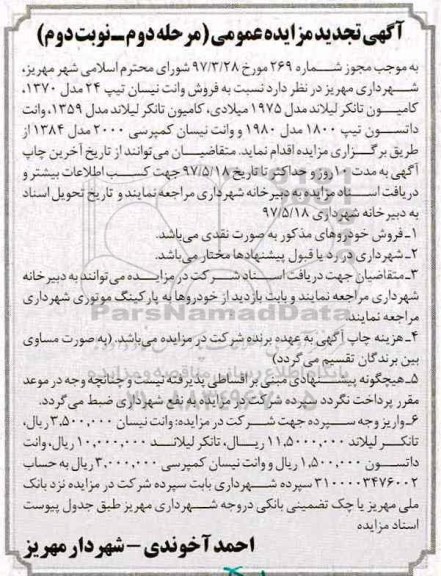 آگهی تجدید مزایده عمومی (مرحله دوم ـ نوبت دوم)
به موجب مجوز شماره ۲۶۹ مورخ ۹۷/۳/۲۸ شورای محترم اسلامی شهر مهریز،
شهرداری مهریز در نظر دارد نسبت به فروش وانت نیسان تیپ ۲۴ مدل ۱۳۷۰،
کامیون تانکر لیلاند مدل ۱۹۷۵ میلادی، کامیون تانکر لیلاند مدل ۱۳۵۹، وانت
داتسون تیپ ۱۸۰۰ مدل ۱۹۸۰ و وانت نیسان کمپرسی ۲۰۰۰ مدل ۱۳۸۴ از
طریق برگزاری مزایده اقدام نماید. متقاضیان می‌توانند از تاریخ آخرین چاپ
آگهی به مدت ۱۰ روز و حداکثر تا تاریخ ۹۷/۵/۱۸ جهت کسب اطلاعات بیشتر و
دریافت اسناد مزایده به دبیرخانه شهرداری مراجعه نمایند و تاریخ تحویل اسناد
به دبیرخانه شهرداری ۹۷/۵/۱۸
۱ـ فروش خودروهای مذکور به صورت نقدی می‌باشد.
۲ـ شهرداری در رد یا قبول پیشنهادها مختار می‌باشد.
۳ـ متقاضیان جهت دریافت اسناد شرکت در مزایده می‌توانند به دبیرخانه
شهرداری مراجعه نمایند و بابت بازدید از خودروها به پارکینگ موتوری شهرداری
مراجعه نمایند.
ParsNamadData
۴ـ هزینه چاپ آگهی به عهده برنده شرکت در مزایده می‌باشد. (به صورت مساوی
بین برندگان تقسیم می‌گردد)
پایگاه اطلاع رسانی مناقصه و مزایده
۵ـ هیچگونه پیشنهادی مبنی بر اقساطی پذیرفته نیست و چنانچه وجه در موعد
مقرر پرداخت نگردد سپرده شرکت در مزایده به نفع شهرداری ضبط می‌گردد.
۶ـ واریز وجه سپرده جهت شرکت در مزایده: وانت نیسان ۳,۵۰۰,۰۰۰ ریال،
تانکر لیلاند ۱۱,۵۰۰۰,۰۰۰ ریال، تانکر لیلاند ۱۰,۰۰۰,۰۰۰ ریال، وانت
داتسون ۱,۵۰۰,۰۰۰ ریال و وانت نیسان کمپرسی ۳,۰۰۰,۰۰۰ ریال به حساب
۳۱۰۰۰۰۳۴۷۶۰۰۲ سپرده شهرداری بابت سپرده شرکت در مزایده نزد بانک
ملی مهریز یا چک تضمینی بانکی در وجه شهرداری مهریز طبق جدول پیوست
اسناد مزایده
احمد آخوندی – شهردار مهریز